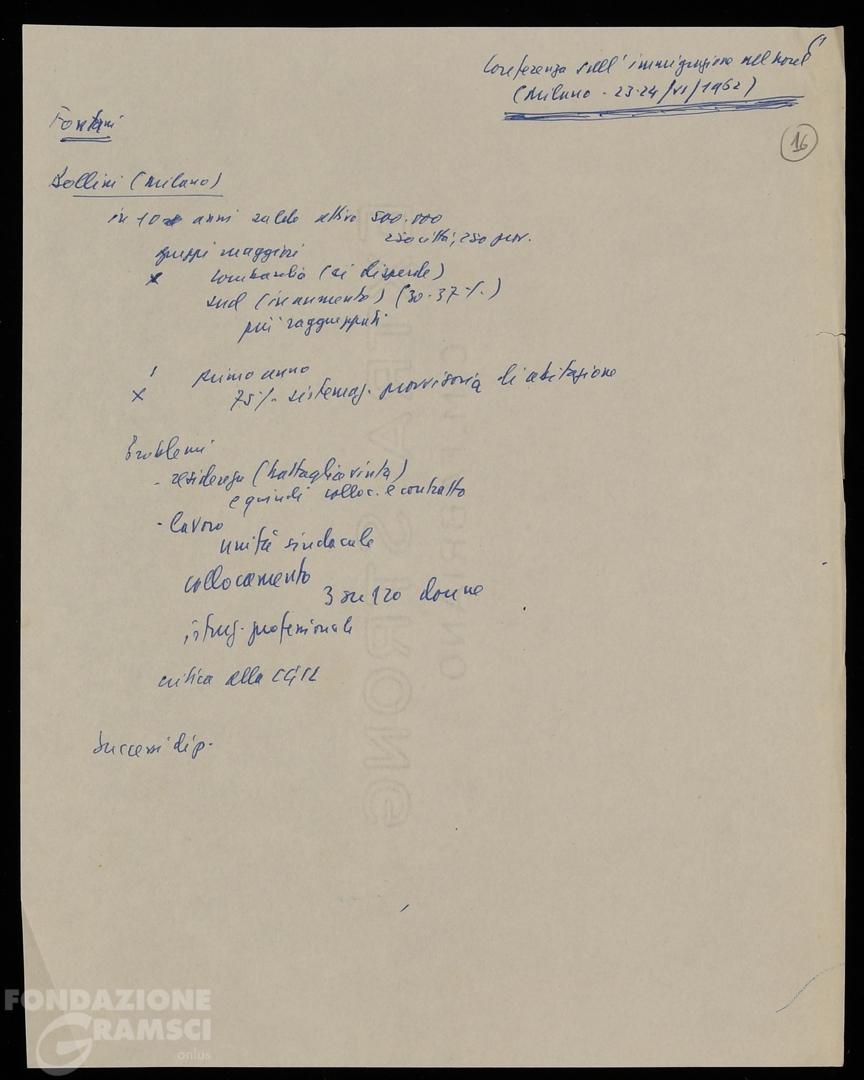 Conferenza sull'immigrazione nel nord
(Milano - 23-24/VI/1962)
16
Fontani
Sollini (Milano)
in 10 anni saldo attivo 500.000
250 città, 250 prov.
gruppi maggiori
x Lombardia (si disperde)
sud (in aumento) (30-37%)
più raggruppati
primo anno
x 75% sistemaz. provvisoria di abitazione
Problemi
- residenza (battaglia vinta)
e quindi colloc. e contratto
- lavoro
unità sindacale
collocamento
3 su 120 donne
istruz. professionale
critica alla CGIL
Successi
FONDAZIONE
GRAMSCI
onlus